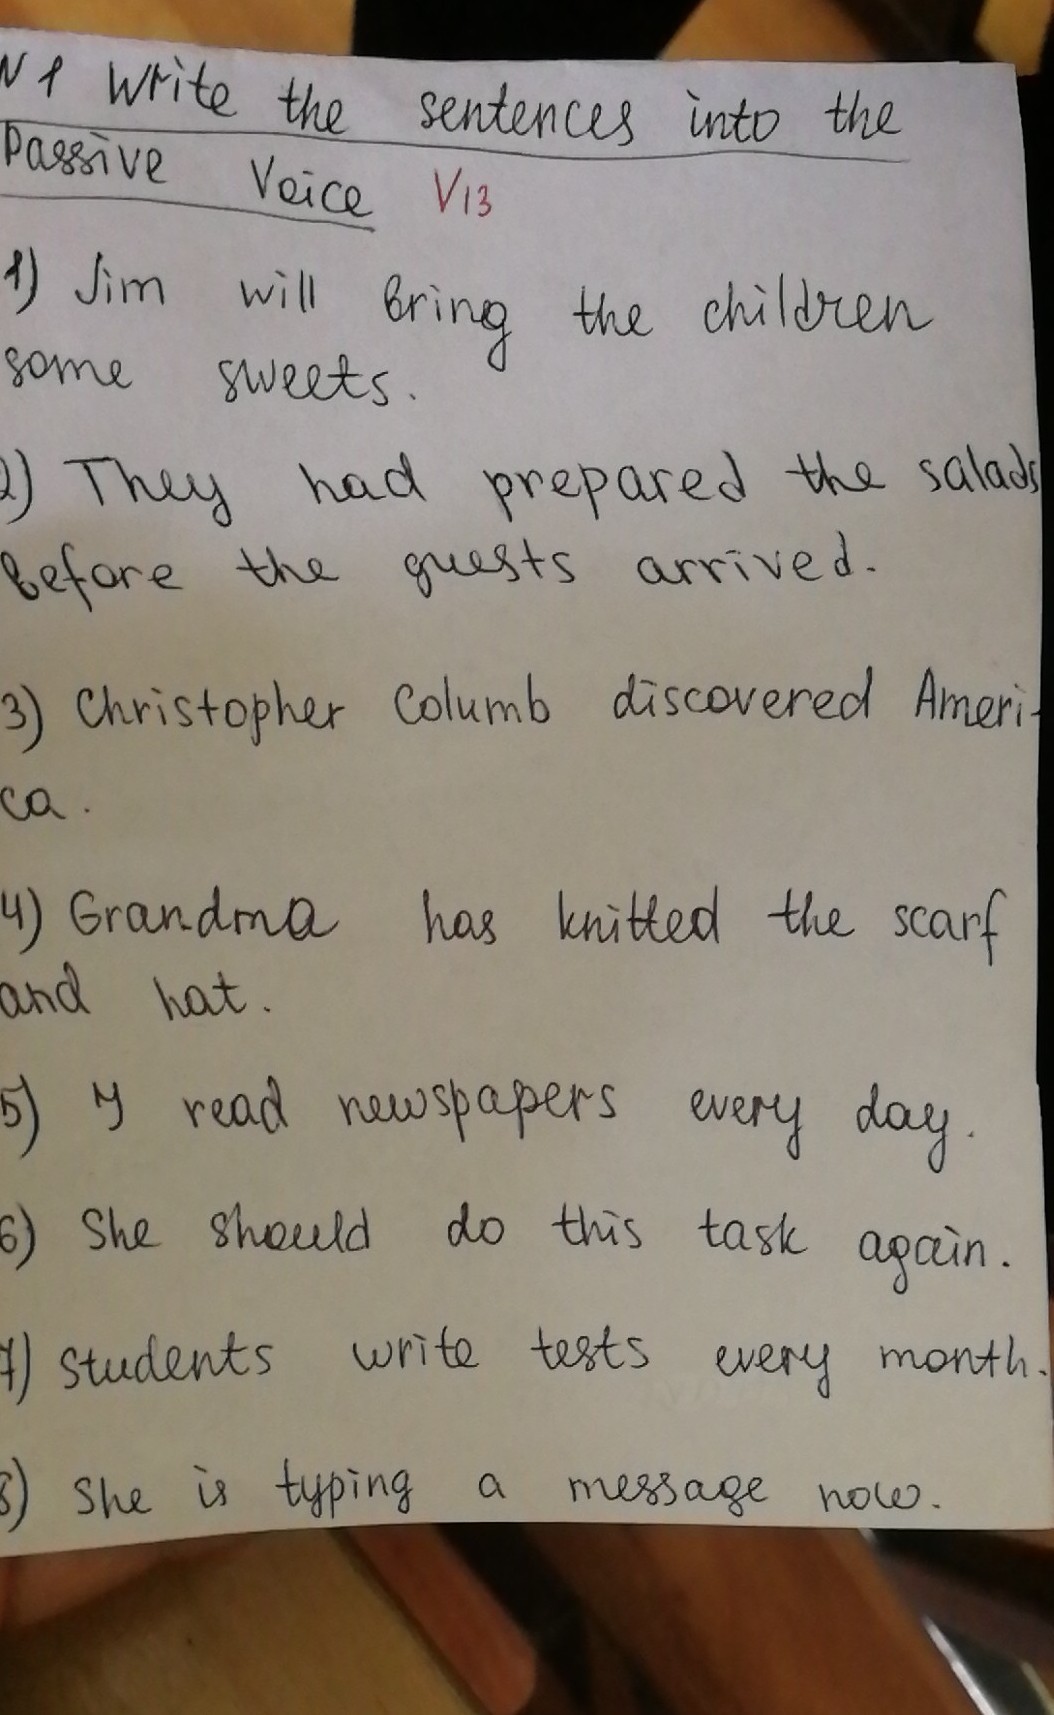 N 1 Write the sentences into the
Passive Voice V13
1) Jim will bring the children
some sweets.
2) They had prepared the salads
before the guests arrived.
3) Christopher Columb discovered Ameri-
ca.
4) Grandma has knitted the scarf
and hat.
5) I read newspapers every day.
6) She should do this task again.
7) Students write tests every month.
8) She is typing a message now.